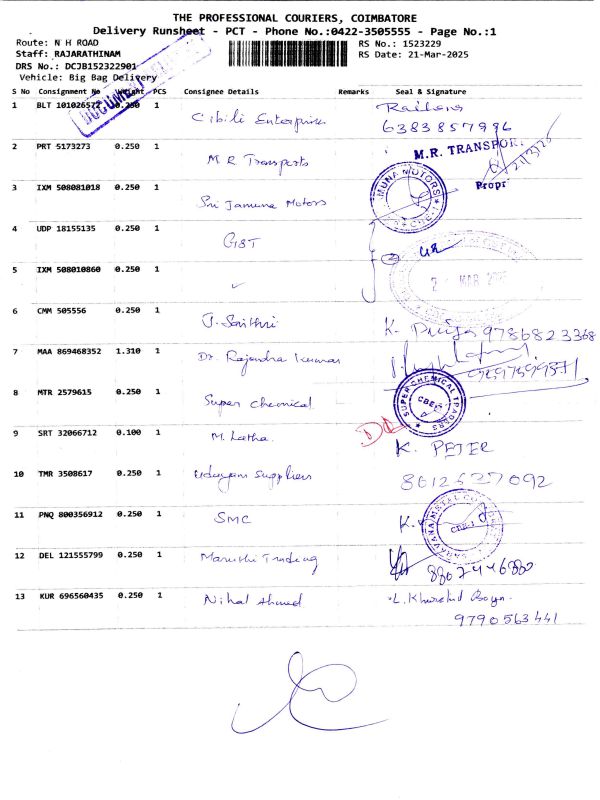 THE PROFESSIONAL COURIERS, COIMBATORE
Delivery Runsheet - PCT - Phone No.:0422-3505555 - Page No.:1
Route: N H ROAD RS No.: 1523229
Staff: RAJARATHINAM RS Date: 21-Mar-2025
DRS No.: DCJB152322901
Vehicle: Big Bag Delivery
DOCUMENT
S No Consignment No Weight PCS Consignee Details Remarks Seal & Signature
1 BLT 101026572 0.250 1 Cibili Enterprises
6383857996
2 PRT 5173273 0.250 1 M R Transports M.R. TRANSPORT
Propr
3 IXM 508081018 0.250 1 Sri Jamuna Motors MUNA MOTORS
4 UDP 18155135 0.250 1 GST
5 IXM 508010860 0.250 1 ✓ 2 MAR 2025
6 CMM 505556 0.250 1 J. Saithri K. Priya 9786823368
7 MAA 869468352 1.310 1 Dr. Rajendra Kumar
8 MTR 2579615 0.250 1 Super Chemical SUPER CHEMICAL TRADERS CBE
9 SRT 32066712 0.100 1 M. Latha. K. PETER
10 TMR 3508617 0.250 1 Udayam Suppliers 8012527092
11 PNQ 800356912 0.250 1 SMC K. SARAVANA METAL CBE-1
12 DEL 121555799 0.250 1 Maruthi Trading 8807446880
13 KUR 696560435 0.250 1 Nihal Ahmed L. Khurshid
9790563441